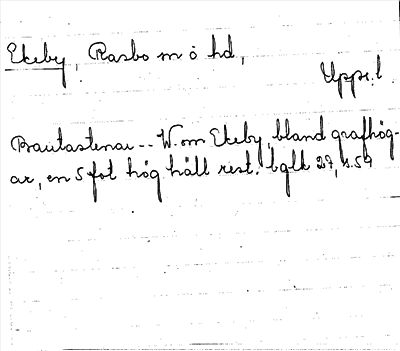 Ekeby, Rasbo m o hd,
Uppl.
Bautastenar -- W. om Ekeby, bland grafhög-
ar, en 5 fot hög häll rest. bglh 27, s. 59